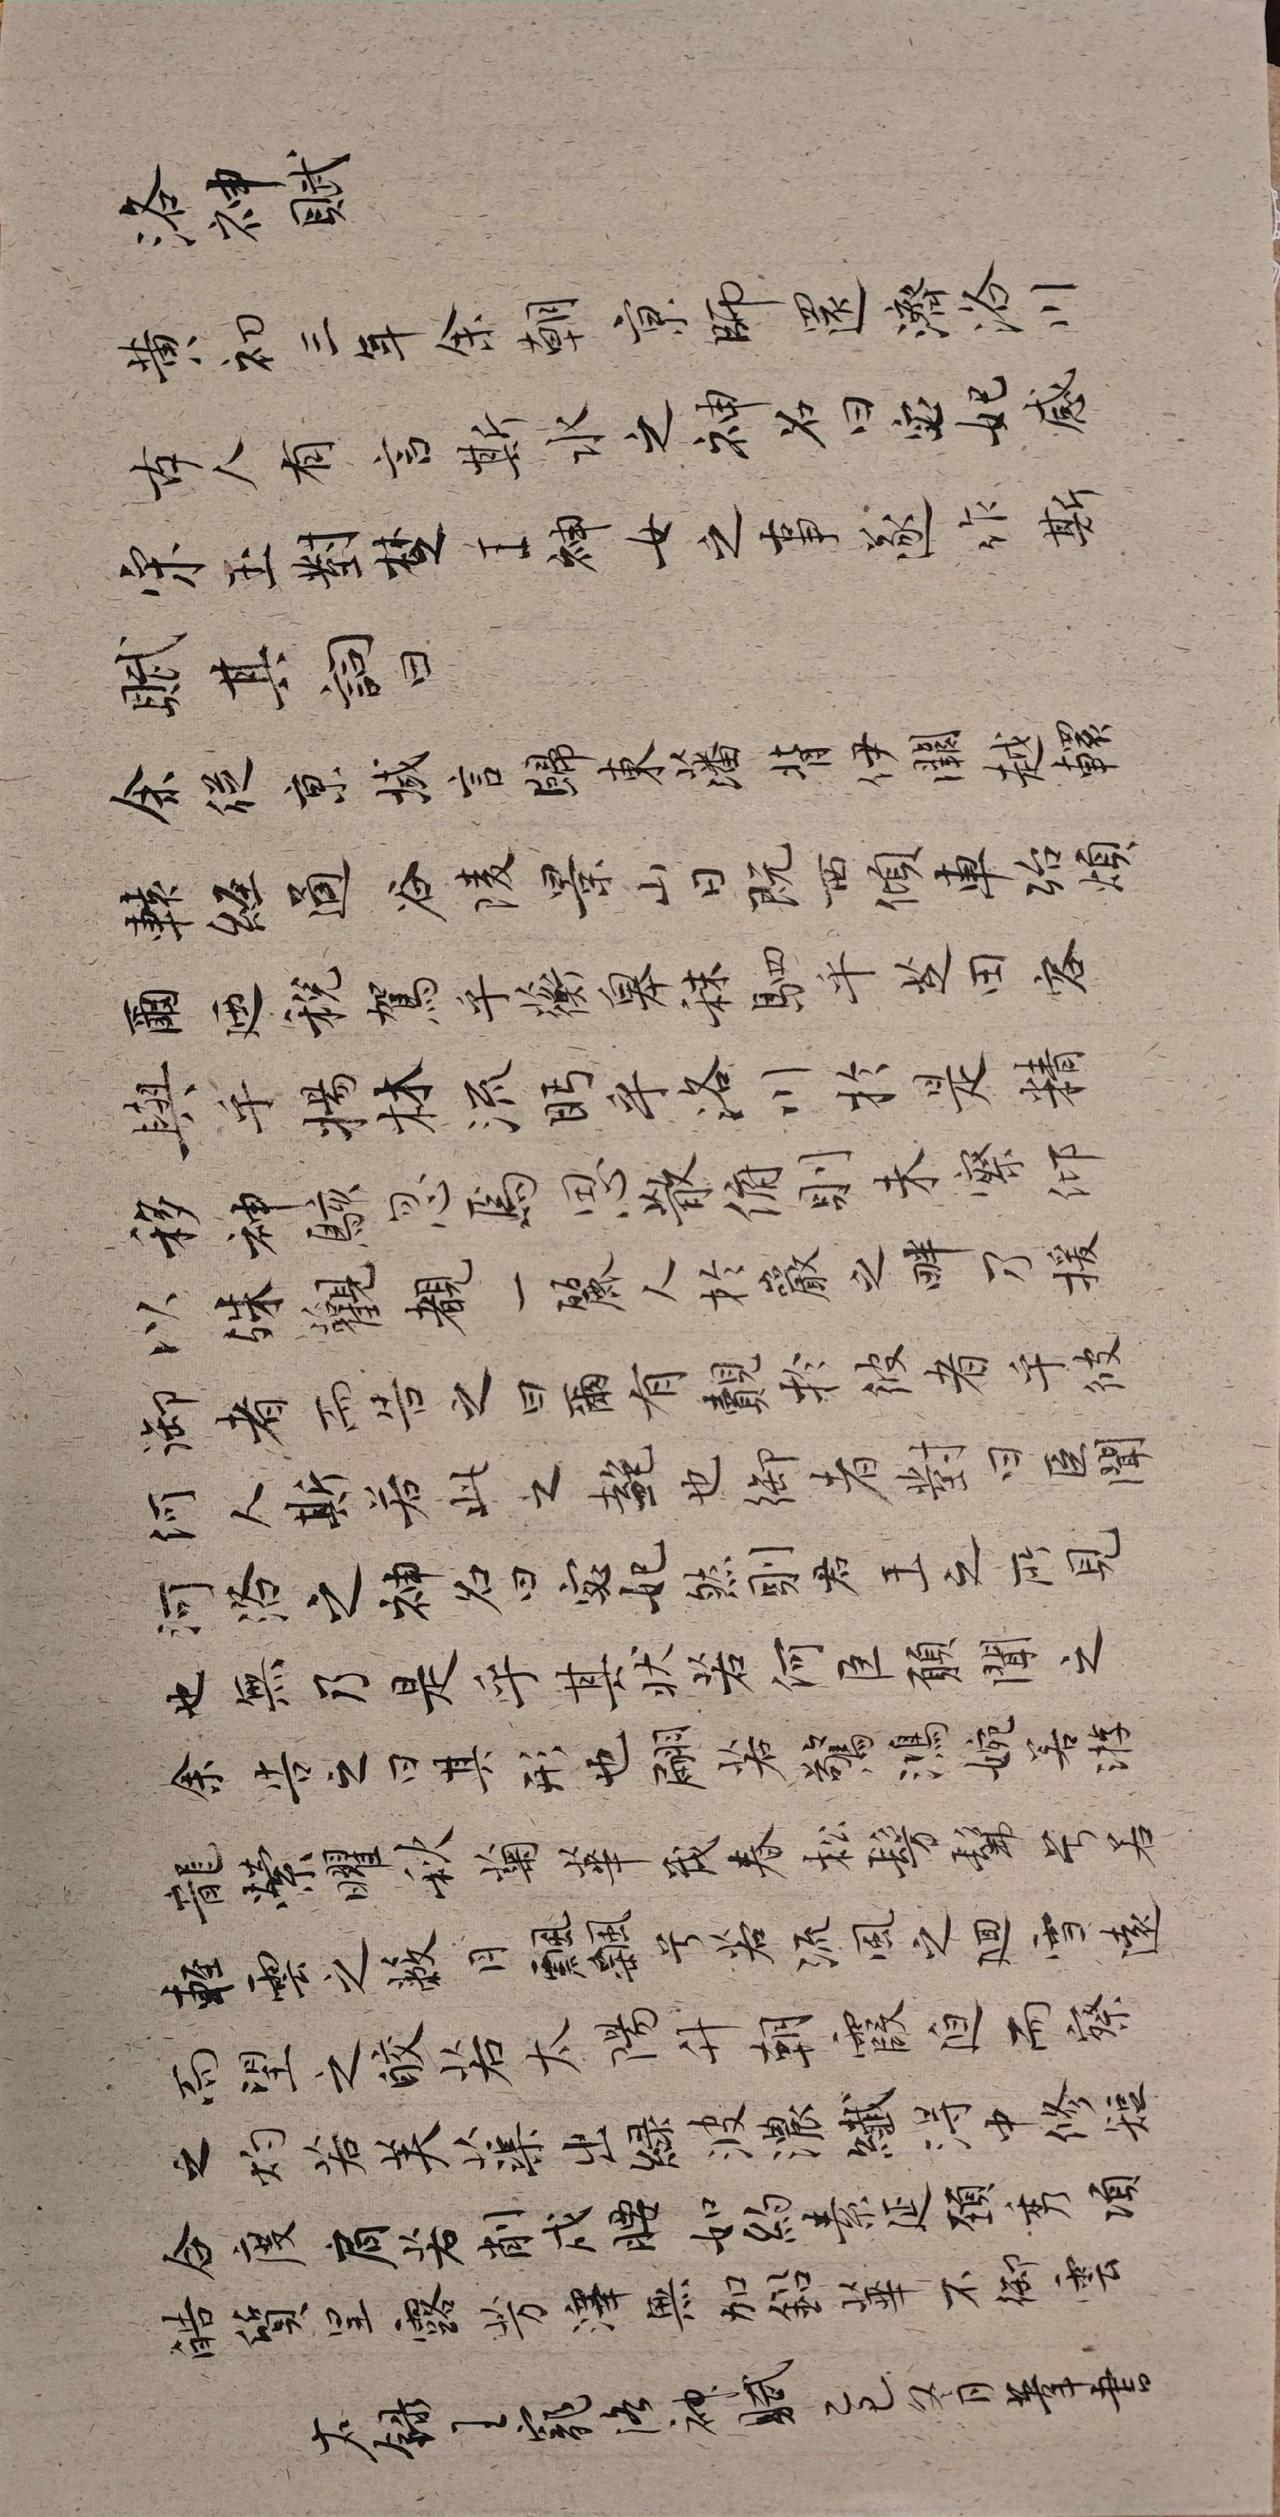 洛神賦
黃初三年余朝京師還濟洛川
古人有言斯水之神名曰宓妃感
宋玉對楚王神女之事遂作斯
賦其詞曰
余從京域言歸東藩背伊闕越轘
轅經通谷陵景山日既西傾車殆煩
爾廼税駕乎蘅皋秣駟乎芝田容
與乎楊林流眄乎洛川於是精
移神駭忽焉思散俯則未察仰
以殊觀覩一麗人於巖之畔乃援
御者而告之曰爾有覿於彼者乎彼
何人斯若此之艷也御者對曰臣聞
河洛之神名曰宓妃然則君王之所見
也無乃是乎其狀若何臣願聞之
余告之曰其形也翩若驚鴻婉若游
龍榮曜秋菊華茂春松髣髴兮若
輕雲之蔽月飄飖兮若流風之迴雪遠
而望之皎若太陽升朝霞迫而察
之灼若芙蕖出綠波濃纖得中修短
合度肩若削成腰如約素延頸秀項
皓質呈露芳澤無加鉛華不御雲
右錄王寵洛神賦乙巳 月 書